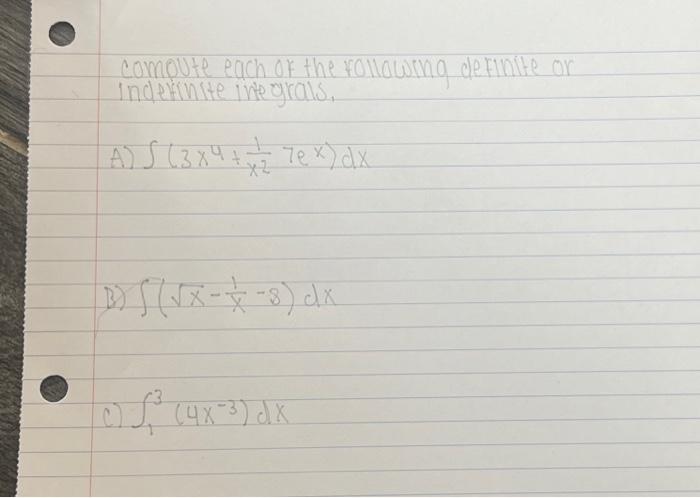 compute each of the following definite or
indefinite integrals.
A) ∫ (3x⁴ + 1/x² 7eˣ) dx
B) ∫ (√x - 1/x - 8) dx
C) ∫₁³ (4x⁻³) dx